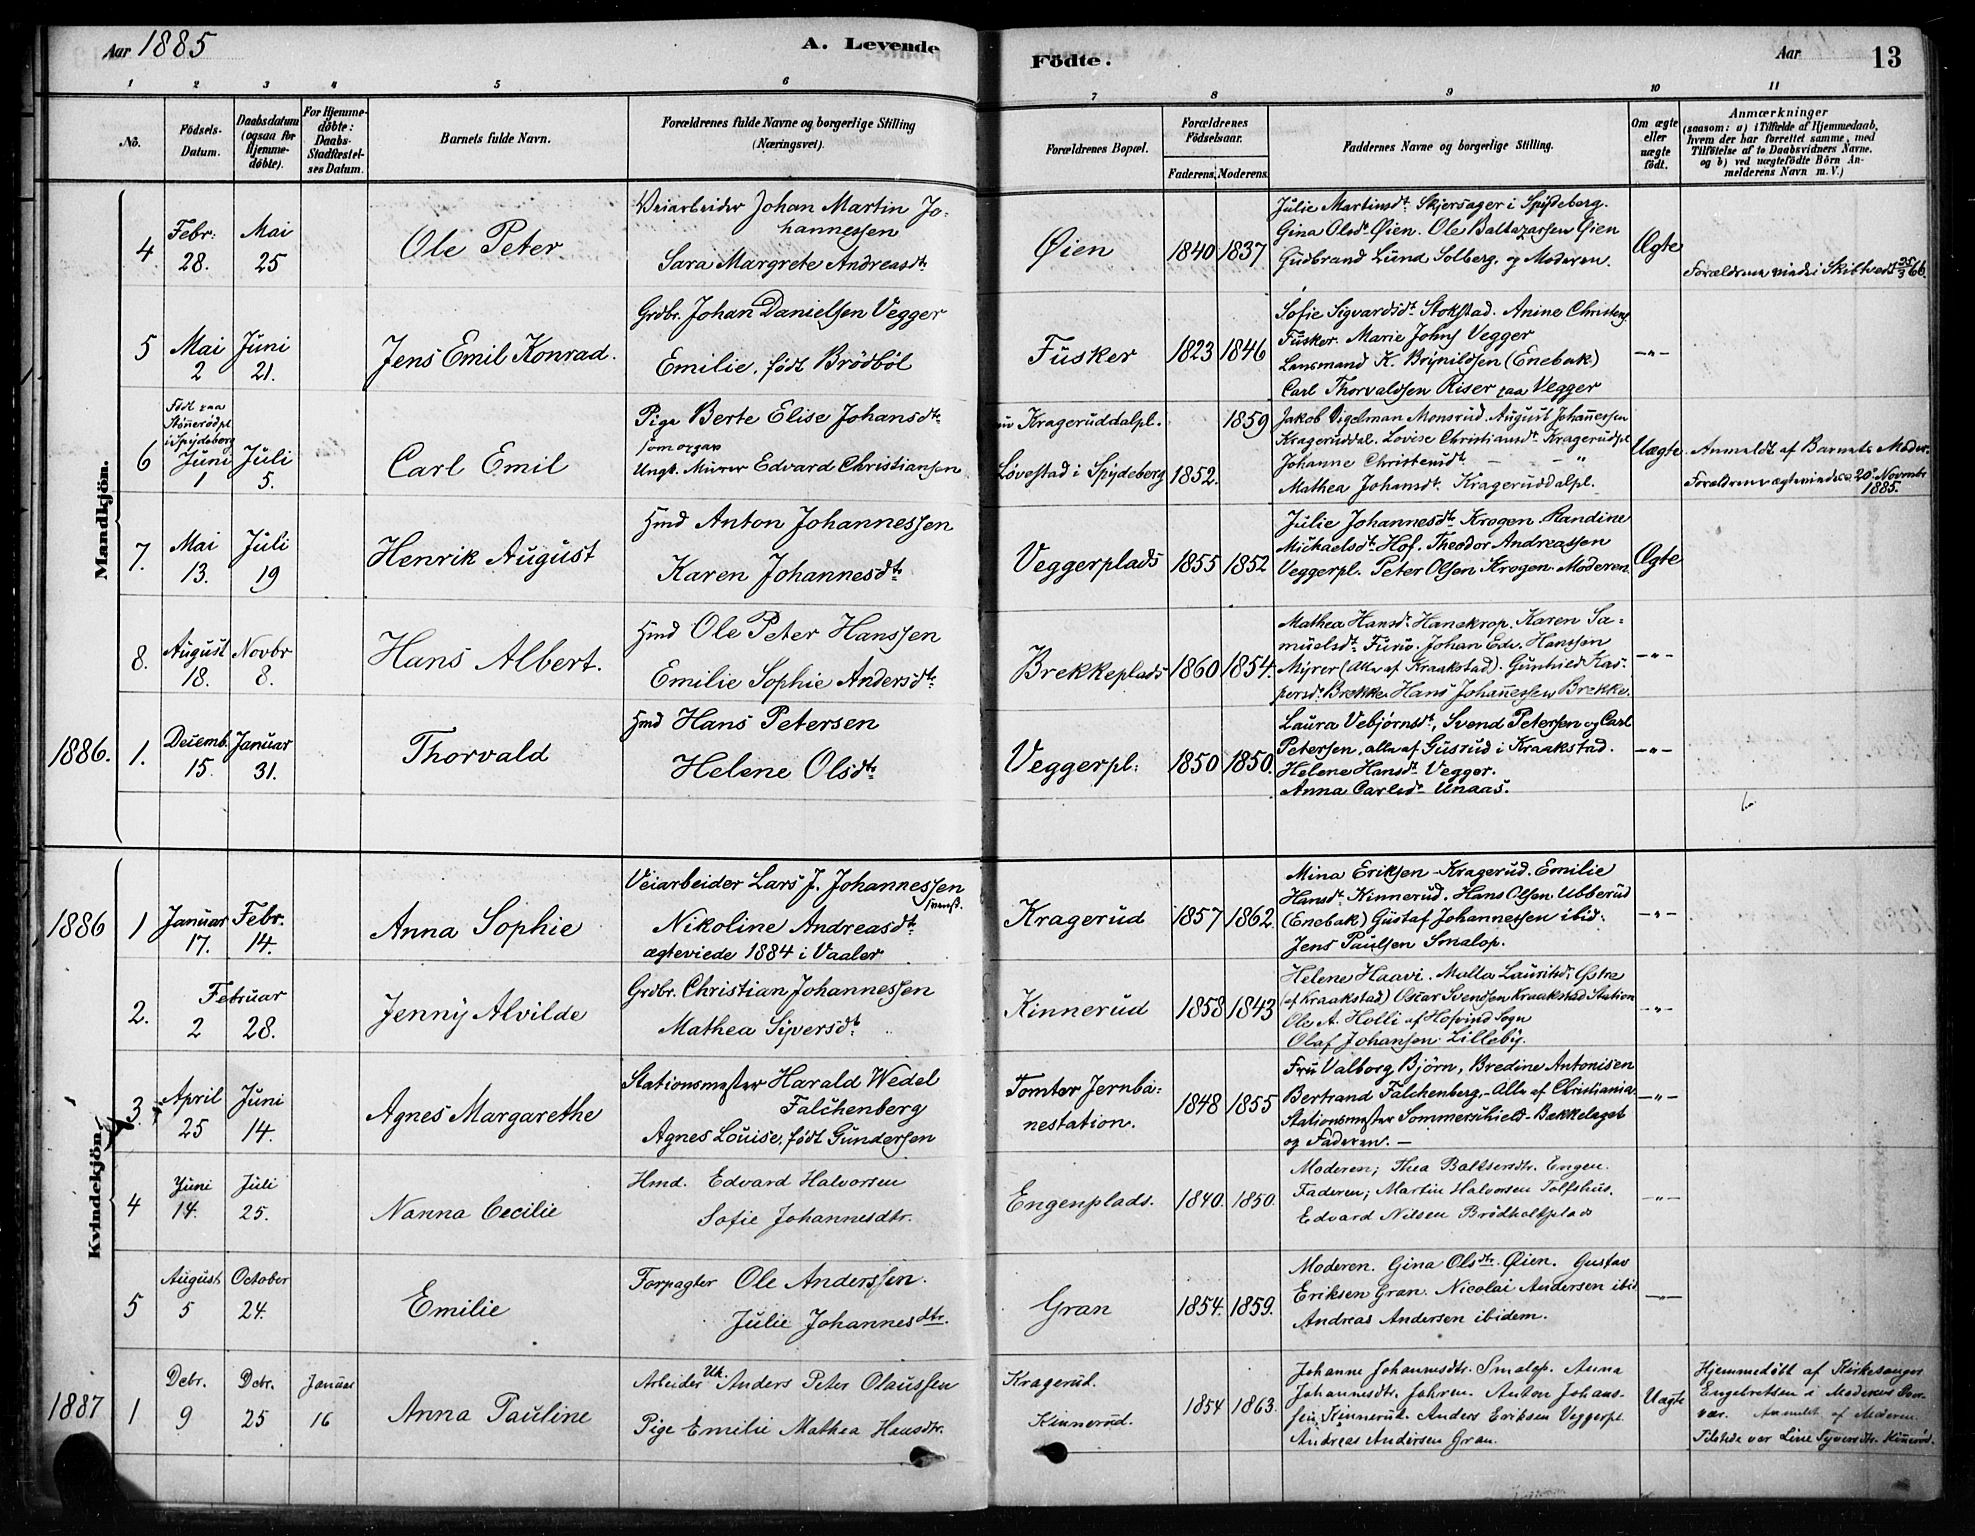 Aar 1885
A. Levende
Födte.
Aar
13
1 2 3 4 5 6 7 8 9 10 11
No.
Födsels-
Datum.
Daabsdatum
(ogsaa for
Hjemme-
döbte).
For Hjemme-
døbte:
Daabs-
Stadfæstel-
ses Datum.
Barnets fulde Navn.
Forældrenes fulde Navne og borgerlige Stilling
(Næringsvei).
Forældrenes Bopæl.
Forældrenes
Födselsaar.
Faderens. Moderens.
Faddernes Navne og borgerlige Stilling.
Om ægte
eller
uægte
født.
Anmærkninger
(saasom: a) i Tilfælde af Hjemmedaab,
hvem der har forrettet samme, med
Tilföielse af to Daabsvidners Navne.
og b) ved uægtefödte Börn An-
melderens Navn m. V.)
Mandkjön.
4
Febr:
28.
Mai
25
Ole Peter
Veiarbeider Johan Martin Jo-
hannessen
Sara Margrete Andreasdt.
Øien
1840 1837
Julie Martinsdt. Skjersager i Spydeberg.
Gina Olsdt. Øien. Ole Baltazarsen Øien
Gudbrand Lund Solberg, og Moderen.
Ægte
Forældrene viede i Skibtvedt 25/3 66.
5
Mai
2
Juni
21.
Jens Emil Konrad.
Grdbr. Johan Danielsen Vegger
Emilie, født Brödböl
Fusker
1823 1846
Sofie Sigvardsdt. Stokstad. Anine Christens
Fusker. Marie Johns Vegger
Lensmand K. Brynildsen (Enebak)
Carl Thorvaldsen Riser paa Vegger
—„—
6
Født paa
Stönerödpl
i Spydeberg
Juni
1
Juli
5.
Carl Emil
Pige Berte Elise Johansdt.
som opgav
Ungk. Murer Edvard Christiansen
Krageruddalpl.
Løvestad i Spydeberg
1859
1852.
Jakob Digelman Monsrud. August Johannessen
Krageruddal. Lovise Christiansdt. Kragerudpl
Johanne Christensdt. — — „
Mathea Johansdt. Krageruddalpl.
Uægte
Anmeldt af Barnets Moder.
Forældrene ægteviedes 20. Novembr
1885.
7.
Mai
13.
Juli
19
Henrik August
Hmd Anton Johannessen
Karen Johannesdt.
Veggerplads
1855 1852
Julie Johannesdt. Krogen. Randine
Mickaelsdt. Hof. Theodor Andreassen
Veggerpl. Peter Olsen Krogen. Moderen.
Ægte
8.
August
18.
Novbr
8.
Hans Albert.
Hmd Ole Peter Hanssen
Emilie Sophie Andersdt.
Brekkeplads
1860 1854.
Mathea Hansdt. Hanekrop. Karen Sa-
muelsdt. Furu. Johan Edv. Hanssen
Myrer (Alle af Kraakstad). Gunhild Kas-
persdt. Brekke Hans Johannessen Brekke.
—„—
1886.
1.
Decemb.
15.
Januar
31.
Thorvald
Hmd Hans Petersen
Helene Olsdt.
Veggerpl.
1850 1850.
Laura Vebjørnsdt, Svend Petersen og Carl
Petersen, alle af Gusrud i Kraakstad.
Helene Hansdt. Vegger.
Anna Carlsdt. Unaas.
—„—
Kvindekjön.
1886
1
Januar
17.
Febr.
14.
Anna Sophie
Veiarbeider Lars J. Johannessen
svensk.
Nikoline Andreasdt.
ægteviede 1884 i Vaaler
Kragerud
1857 1862.
Mina Eriksen Kragerud. Emilie
Hansdt. Kinnerud. Hans Olsen Ubberud
(Enebak) Gustaf Johannessen ibid.
Jens Paulsen Smalop.
—„—
2.
Februar
2
28.
Jenny Alvilde
Grdbr. Christian Johannessen
Mathea Siversdt.
Kinnerud
1858 1843
Helene Haavi. Malla Lauritsd. Østre
(af Kraakstad) Oscar Svendsen Kraakstad Station
Ole A. Holli af Hofvind Sogn
Olaf Johansen Lilleby.
—„—
3.
April
25
Juni
14.
Agnes Margarethe
Stationsmester Harald Wedel
Falchenberg
Agnes Louise, født Gundersen
Tomter Jernba-
nestation.
1848 1855
Fru Valborg Bjørn, Bredine Antonisen
Bertrand Falchenberg,- Alle af Christiania
Stationsmester Sommerschield - Bækkelaget
og Faderen. —
—„—
4
Juni
14.
Juli
25.
Nanna Cecilie
Hmd. Edvard Halvorsen
Sofie Johannesdtr.
Engenplads.
1840. 1850.
Moderen; Thea Baltsersdtr. Engen.
Faderen; Martin Halvorsen Tolfshus.
Edvard Nilsen Brödholtplads
—„—
5
August
5
October
24.
Emilie
Forpagter Ole Anderssen.
Julie Johannesdtr.
Gran
1854. 1859.
Moderen. Gina Olsdtr. Øien. Gustav
Eriksen Gran. Nicolai Andersen ibid
Andreas Andersen ibidem.
—„—
1887
1
Debr.
9
Debr.
25
Januar
16
Anna Pauline
Arbeider Uk. Anders Peter Olaussen
Pige Emilie Mathea Hansdtr.
Kragerud.
Kinnerud.
1854 1863.
Johanne Johannesdtr. Smalop. Anna
Johannesdtr. Jahren. Anton Johans-
sen, Kinnerud. Anders Eriksen Veggerpl.
Andreas Andersen Gran.
Uægte
Hjemmedöbt af Kirkesanger
Engebretsen i Moderens Nær-
vær. Anmeldt af Moderen.
Tilstede var Line Syversdtr. Kinneröd.